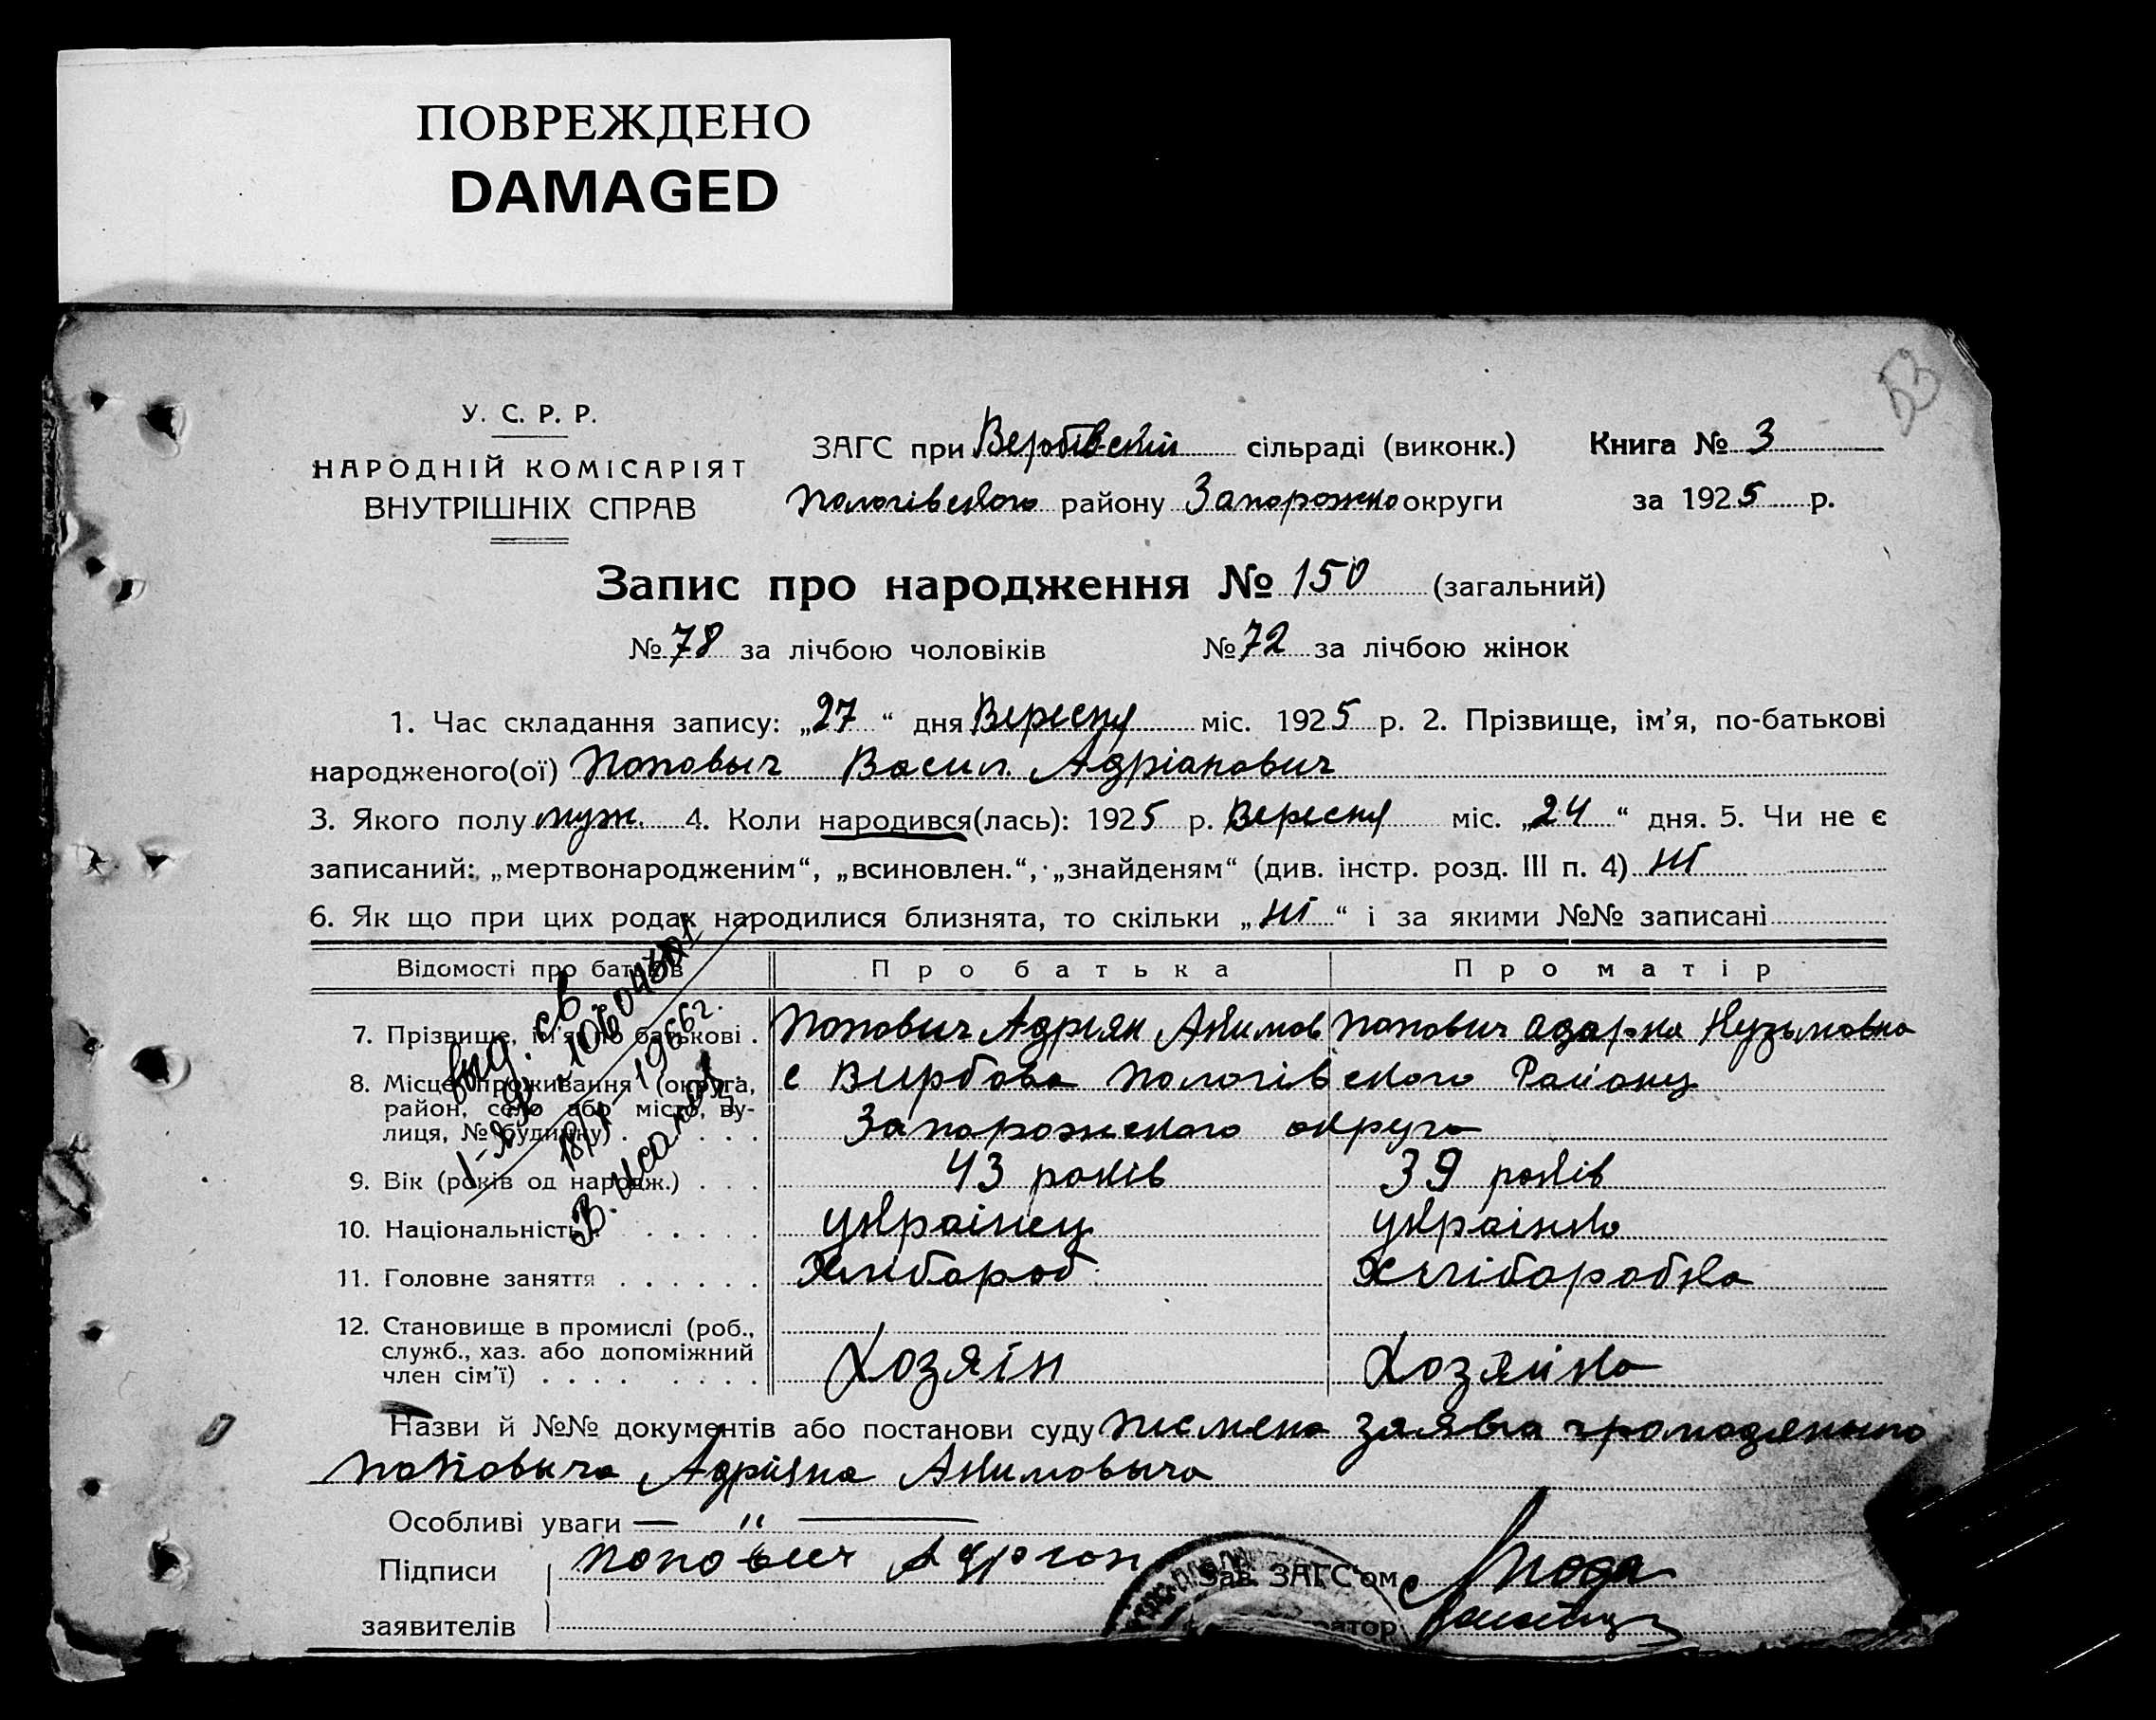 ПОВРЕЖДЕНО
DAMAGED
53
У. С. Р. Р.
НАРОДНІЙ КОМІСАРІЯТ
ВНУТРІШНІХ СПРАВ
ЗАГС при Вербівській сільраді (виконк.) Книга № 3
Пологівського району Запорожко округи за 1925 р.
Запис про народження № 150 (загальний)
№ 78 за лічбою чоловіків № 72 за лічбою жінок
1. Час складання запису: „27“ дня Вересня міс. 1925 р. 2. Прізвище, ім'я, по-батькові
народженого(ої) Поповыч Васил Адріанович
3. Якого полу муж. 4. Коли народився(лась): 1925 р. Вересня міс. „24“ дня. 5. Чи не є
записаний: „мертвонародженим“, „всиновлен.“, „знайденям“ (див. інстр. розд. III п. 4) ні
6. Як що при цих родах народилися близнята, то скільки „ні“ і за якими №№ записані
Відомості про батьків Про батька Про матір
7. Прізвище, ім'я по батькові . Попович Адриян Акимов Попович Одаркя Кузьмовна
8. Місце проживання (округа, с Вирбова Пологівского Району
район, село або місто, ву-
лиця, № будинку) . . . . Запорожского округа
9. Вік (років од народж.) . . . 43 років 39 років
10. Національність . . . . . . українец українка
11. Головне заняття . . . . . . Хлібороб Хліборобка
12. Становище в промислі (роб.,
служб., хаз. або допоміжний Хозяїн Хозяйка
член сім'ї) . . . . . . . .
выд. св.
18/V-1966г.
В. Исакова
Назви й №№ документів або постанови суду писмена заява громодяныно
Поповыча Адрияна Акимовыча
Особливі уваги — „ —
Підписи Поповыч Адриан Зав. ЗАГС'ом
заявителів